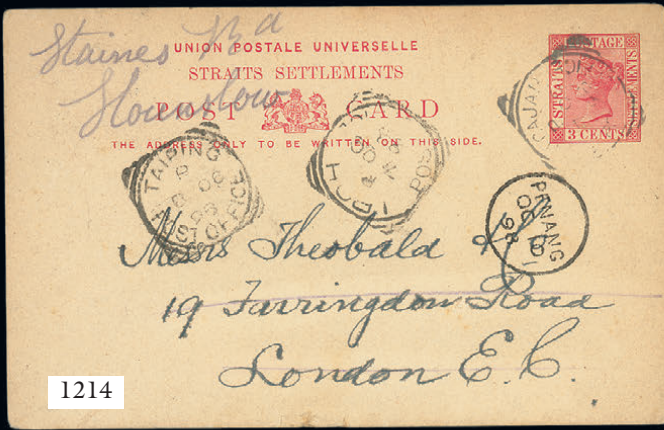 Staines Rd
Hounslow
UNION POSTALE UNIVERSELLE
STRAITS SETTLEMENTS
POST CARD
THE ADDRESS ONLY TO BE WRITTEN ON THIS SIDE.
STRAITS POSTAGE SETTLEMENTS
3 CENTS
KAJANG
TAIPING
POST OFFICE
IPOH
POST
PENANG
OC
98
Messrs Theobald & Co
19 Farringdon Road
London E.C.
1214